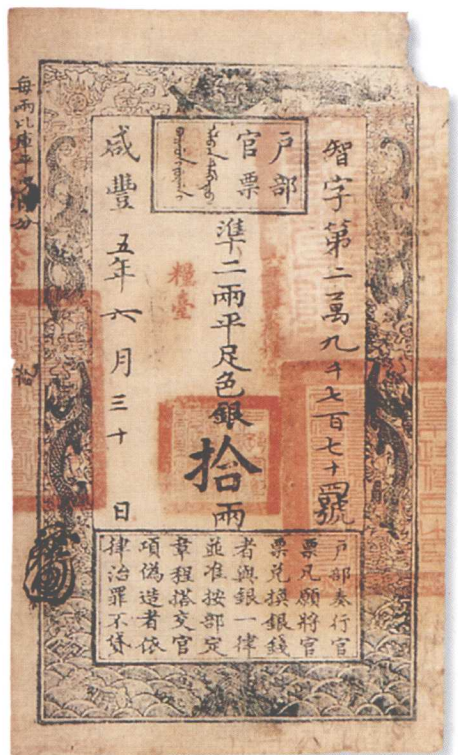 户部
官票
智字第二萬九千七百七十四號
準二兩平足色銀拾兩
糧臺
咸豐五年六月三十日
户部奏行官
票凡願將官
票兌換銀錢
者與銀一律
並准按部定
章程搭交官
項偽造者依
律治罪不貸
每兩比庫平
分